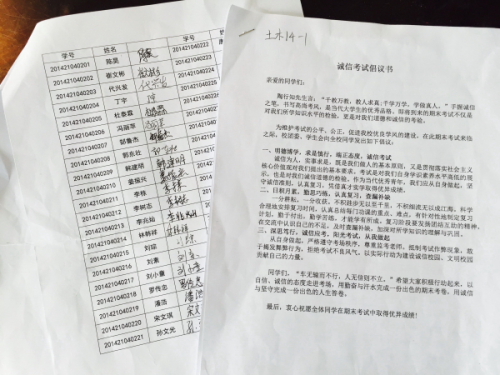 学号 姓名 学号
201421040201 陈昊 201421040222
201421040202 张文彬 201421040223
201421040203 代兴发
201421040204 丁宇
201421040205 杜泰霖
201421040206 冯丽苹
201421040207 郜鲁杰
201421040208 郭兆社
201421040209 韩建明
201421040210 姜振兴
201421040211 李栋
201421040212 李树志
201421040213 李兆灿
201421040214 林韩祥
201421040215 刘琮
201421040216 刘素
201421040217 刘小童
201421040218 罗传忠
201421040219 潘浩
201421040220 朱文琪
201421040221 孙文光
土木14-1
诚信考试倡议书
亲爱的同学们:
陶行知先生言:“千教万教,教人求真;千学万学,学做真人。”手握诚信
之笔,书写高尚风尚,是当代大学生的优秀品格。即将到来的期末考试不仅是
对我们所学知识水平的检验,更是对我们道德和诚信的考验。
为维护考试的公平、公正,促进我校优良学风的建设,在此期末考试来临
之际,校团委、学生会向全校同学发出如下倡议:
一、明德博学,求是慎行,端正态度,诚信考试
诚信为人,实事求是,既是我们做人的基本原则,又是贯彻落实社会主义
核心价值观对我们提出的基本要求。考试是对我们自身学识素养水平高低的展
示,也是对我们诚信道德的检验。作为当代优秀青年,我们应从自身做起,坚
守诚信准则,认真复习,凭借真才实学取得优异成绩。
二、目标月累,勤思巧练,认真复习,查漏补缺
一分耕耘,一分收获,不积跬步无以至千里,不积细流无以成江海。科学
合理地安排复习时间,认真总结每门功课的重点、难点,有针对性地制定复习
计划,勤于付出,勤学苦练,才能学有所成。复习阶段要发扬团结互助的精神,
在交流中认识自己的不足,及时查漏补缺,加深对所学知识的理解与巩固。
三、深思笃行,诚信应考,阳光考试,从我做起
从自身做起,严格遵守考场秩序,尊重监考老师,抵制考试作弊现象,敢
于揭发舞弊行为,拒绝考试不良风气,以实际行动为建设诚信校园、文明校园
贡献自己的力量。
同学们,“车无辕而不行,人无信则不立。”希望大家积极行动起来,以
自信、诚信的态度走进考场,用勤奋与汗水完成一份出色的期末考卷,用诚信
与坚守完成一份出色的人生答卷。
最后,衷心祝愿全体同学在期末考试中取得优异成绩!